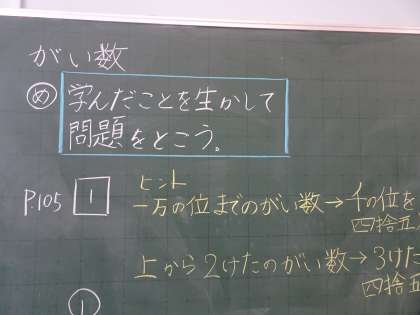 がい数
め 学んだことを生かして
問題をとこう。
P.105 1 ヒント
一万の位までのがい数→千の位を
四捨五
上から2けたのがい数→3けた
四捨五
1